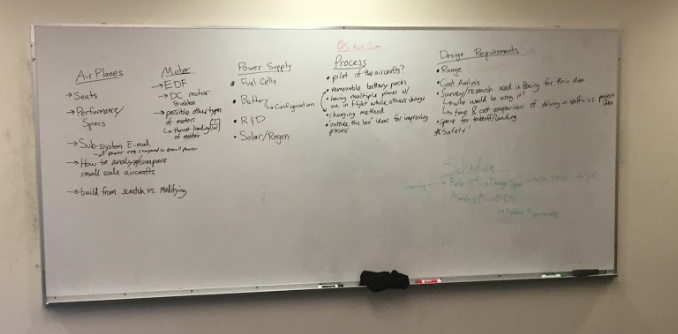 Air Planes
→ Seats
→ Performance/
Specs
→ Sub-system E-mail
→ How to analyze/compare
small scale aircrafts
→ build from scratch vs. Modifying
Motor
→ EDF
→ DC motor
→ possible other types
of motors
→ thrust loading
of motor
Power Supply
• Fuel Cells
• Battery
→ Configuration
• R&D
• Solar/Regen
Process
• pilot of the aircrafts?
• removable battery packs
• having multiple planes w/
one in flight while others charge
• charging method
• outside the box ideas for improving
process
Design Requirements
• Range
• Cost Analysis
• Survey/research need in Boeing for this idea
→ who would be using it?
→ time & cost comparison of driving in traffic vs. project
idea
• space for takeoff/landing
* Safety!
Schedule